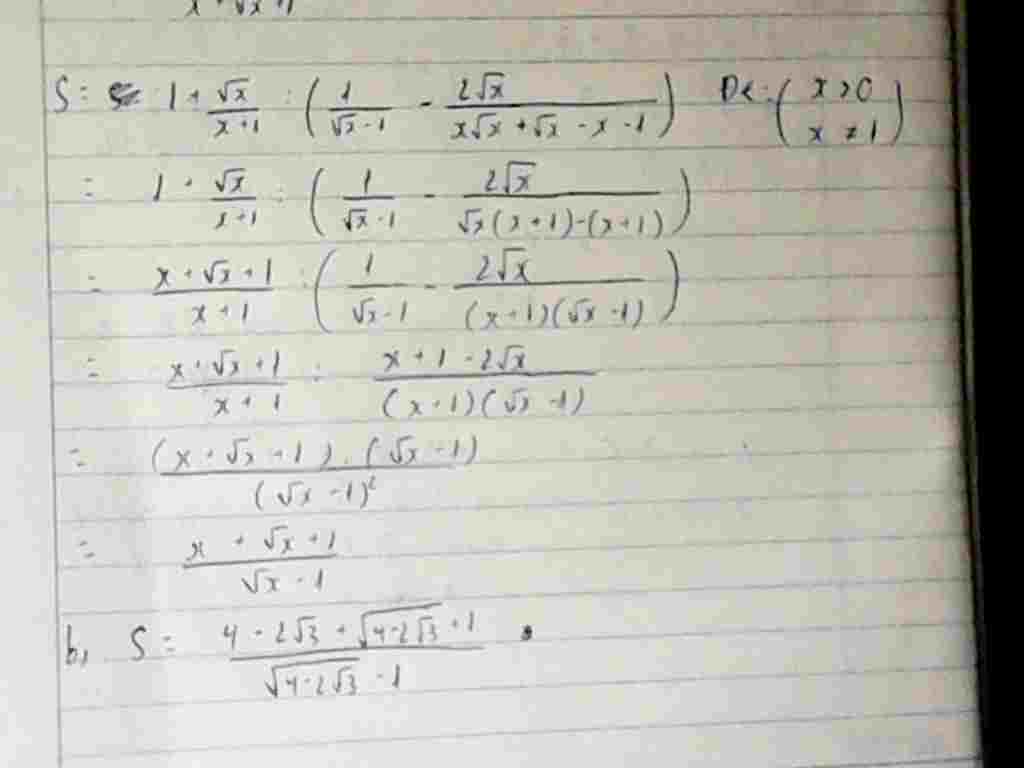 x + √x + 1
S = 1 + √x/(x+1) : (1/(√x-1) - 2√x/(x√x + √x - x - 1)) Đk: (x > 0 x ≠ 1)
= 1 + √x/(x+1) : (1/(√x-1) - 2√x/(√x(x+1)-(x+1)))
= (x+√x+1)/(x+1) : (1/(√x-1) - 2√x/((x+1)(√x-1)))
= (x+√x+1)/(x+1) : (x+1-2√x)/((x+1)(√x-1))
= (x+√x+1).(√x-1)/(√x-1)²
= (x+√x+1)/(√x-1)
b, S = (4-2√3+√(4-2√3)+1)/(√(4-2√3)-1)